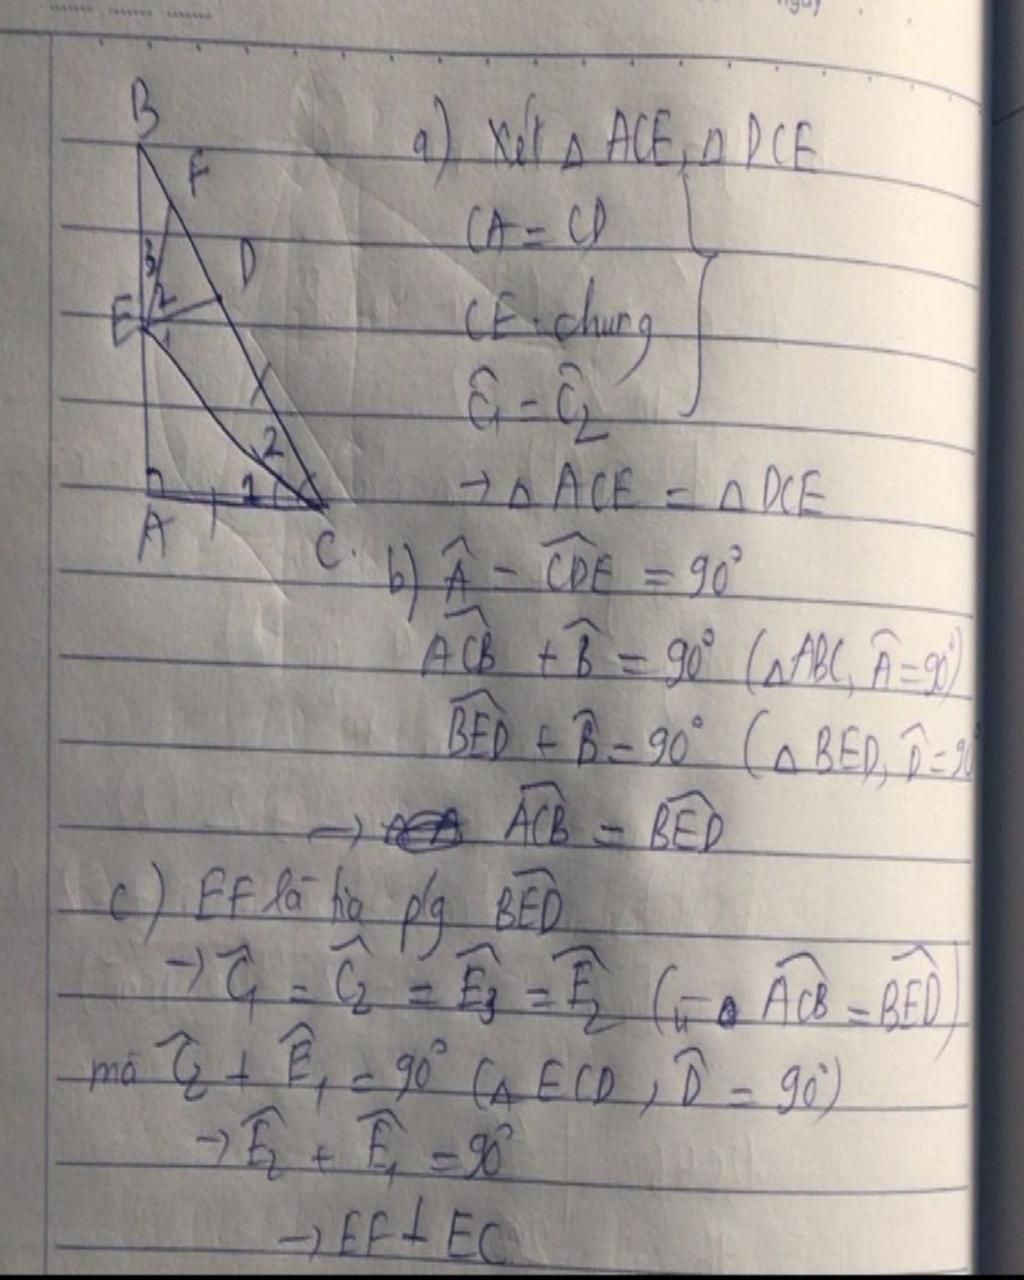 ngày
B
F
D
E
3
2
1
2
1
A
C
a) Xét △ ACE, △ DCE
CA = CD
CE chung
Ĉ₁ = Ĉ₂
→ △ ACE = △ DCE
b) Â = \widehat{CDE} = 90°
\widehat{ACB} + B̂ = 90° (△ABC, Â = 90°)
\widehat{BED} + B̂ = 90° (△ BED, D̂ = 90°
→ \widehat{ACB} = \widehat{BED}
c) EF là tia p/g \widehat{BED}
→ Ĉ₁ = Ĉ₂ = Ê₃ = Ê₂ ( \widehat{ACB} = \widehat{BED})
mà Ĉ₂ + Ê₁ = 90° (△ ECD, D̂ = 90°)
→ Ê₂ + Ê₁ = 90°
→ EF ⊥ EC